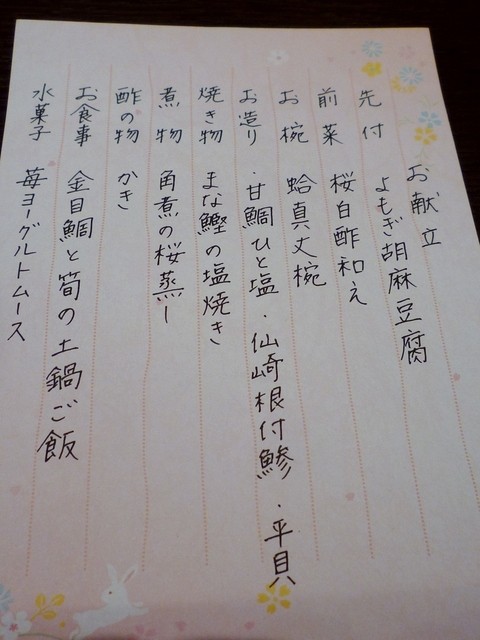 お献立
先付 よもぎ胡麻豆腐
前菜 桜白酢和え
お椀 蛤真丈椀
お造り ・甘鯛ひと塩 ・仙崎根付鯵 ・平貝
焼き物 まな鰹の塩焼き
煮物 角煮の桜蒸し
酢の物 かき
お食事 金目鯛と筍の土鍋ご飯
水菓子 苺ヨーグルトムース